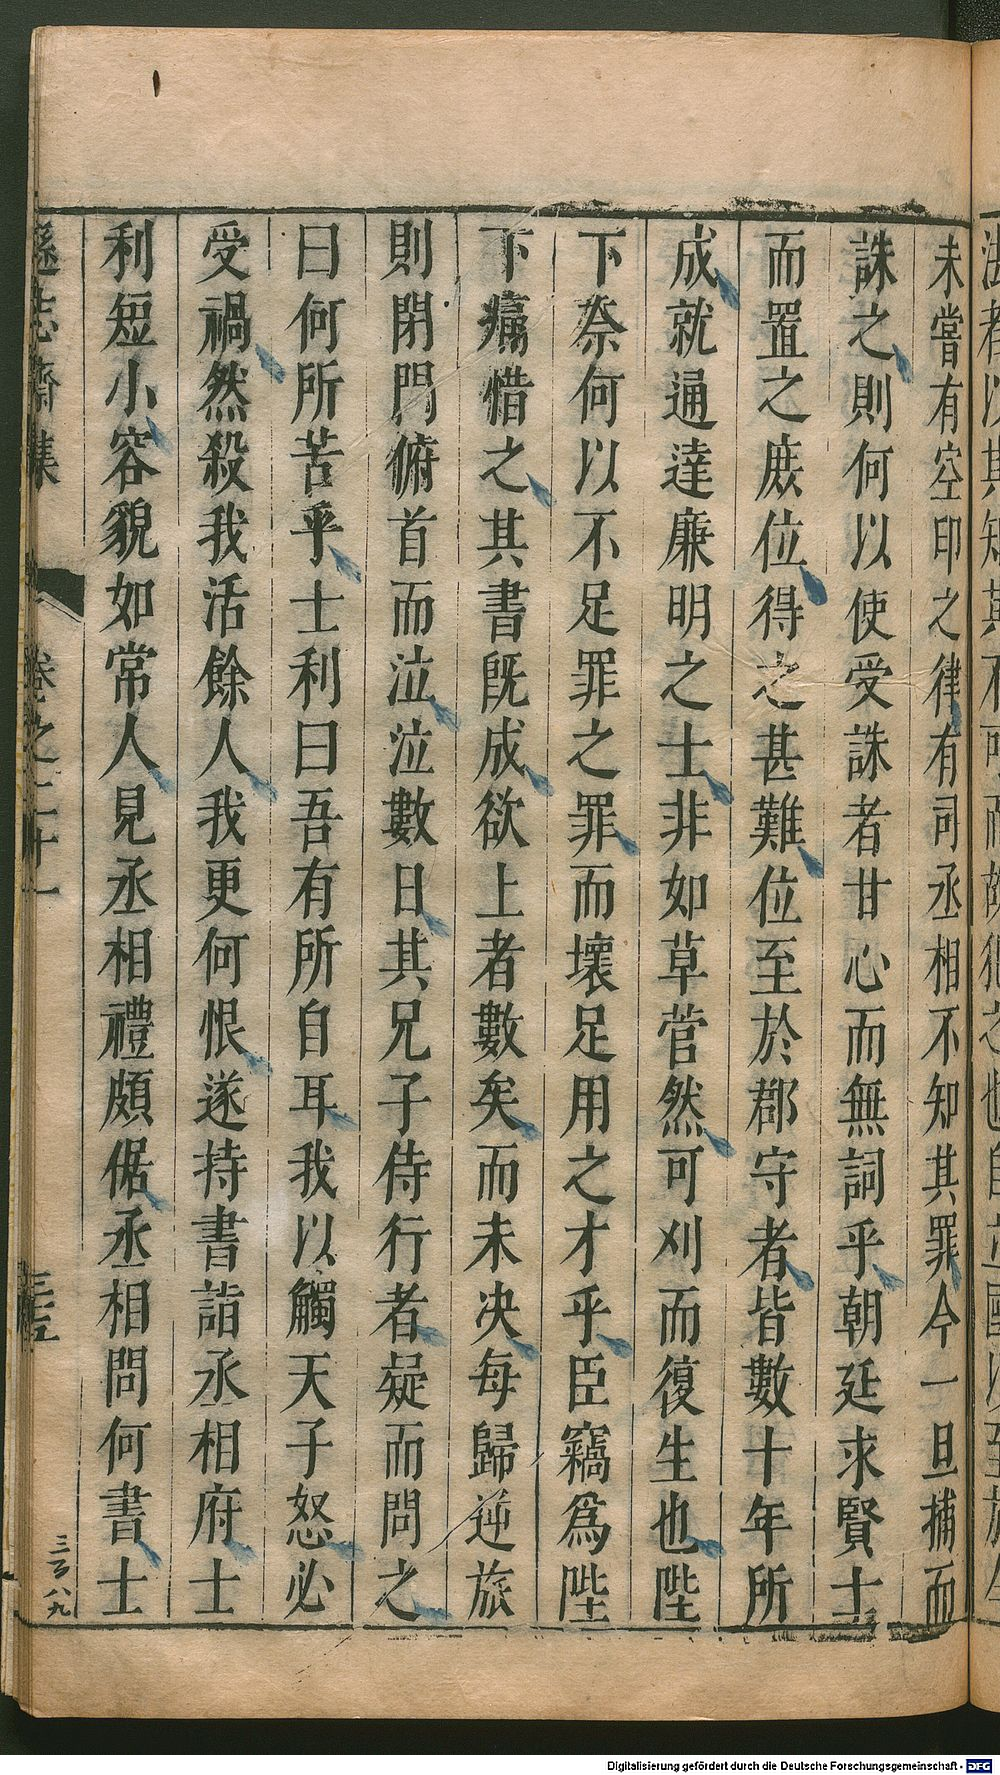 未嘗有空印之律有司丞相不知其罪今一旦捕而
誅之則何以使受誅者甘心而無詞乎朝延求賢士
而置之庶位得之甚難位至於郡守者皆數十年所
成就通達廉明之士非如草菅然可刈而復生也陛
下奈何以不足罪之罪而壞足用之才乎臣竊爲陛
下痛惜之其書既成欲上者數矣而未决每歸逆旅
則閉門俯首而泣泣數日其兄子侍行者疑而問之
曰何所苦乎士利曰吾有所自耳我以觸天子怒必
受禍然殺我活餘人我更何恨遂持書詣丞相府士
利短小容貌如常人見丞相禮頗倨丞相問何書士
遜志齋集
卷之二十一
三五
Digitalisierung gefördert durch die Deutsche Forschungsgemeinschaft - DFG